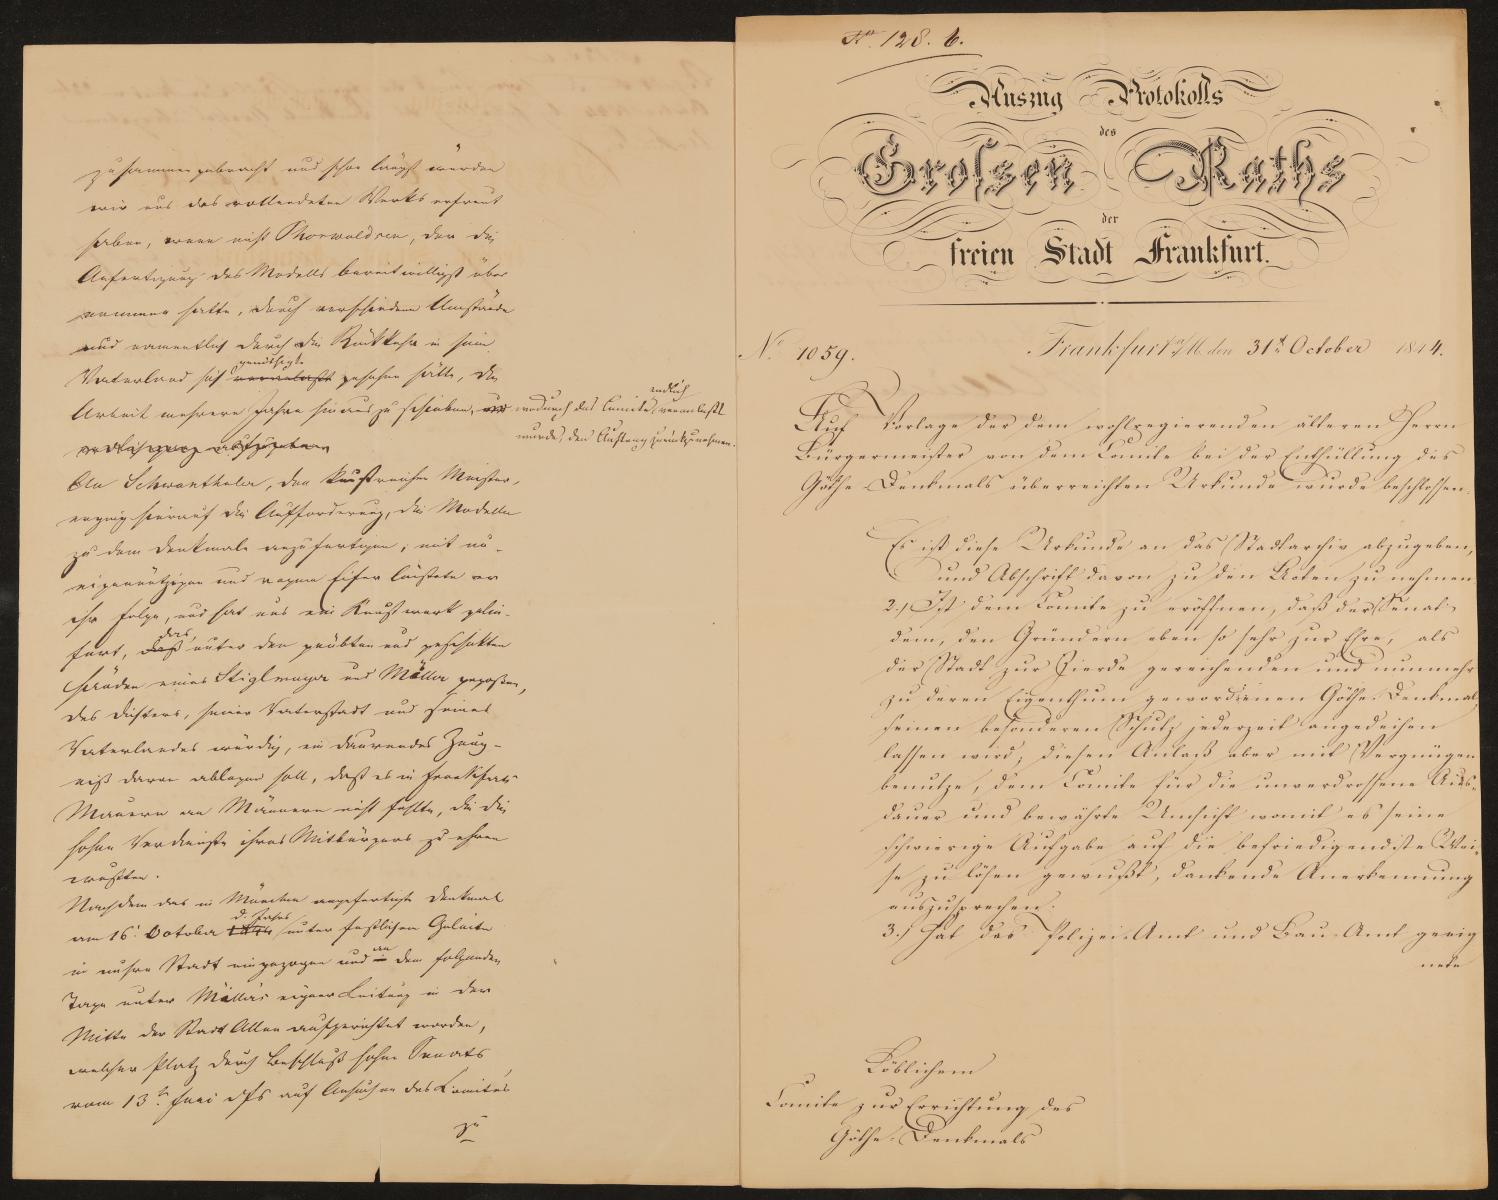 zusammengebracht und schon längst würden
wir uns des vollendeten Werks erfreut
haben, wenn nicht Thorwaldsen, der die
Anfertigung des Modells bereitwilligst über
nommen hatte, durch verschiedene Umstände
und namentlich durch die Rückkehr in sein
genöthigt
Vaterland sich veranlaßt gesehen hätte, die
Arbeit mehrere Jahre hinaus zu schieben, und wodurch das Comité endlich veranlaßt
wurde, den Auftrag zurückzunehmen.
An Schwanthaler, den kunstreichen Meister,
erging hierauf die Aufforderung, die Modelle
zu dem Denkmale anzufertigen; mit un-
eigennützigem und regem Eifer leistete er
ihr Folge, und hat uns ein Kunstwerk gelie-
das,
fert, daß unter den geübten und geschickten
Händen eines Stiglmayer und Miller gegossen,
des Dichters, seiner Vaterstadt und seines
Vaterlandes würdig, ein dauerndes Zeug-
niß davon ablegen soll, daß es in Frankfurts
Mauern an Männern nicht fehlte, die die
hohen Verdienste ihres Mitbürgers zu ehren
wußten.
Nachdem das in München angefertigte Denkmal
d. Jahres
am 16t October 1844 unter festlichem Geleite
in unsre Stadt eingezogen und in an dem folgenden
Tage unter Miller's eigner Leitung in der
Mitte der Stadt Allee aufgerichtet worden,
welcher Platz durch Beschluß hohen Senats
vom 13ten Juni dJs auf Ansuchen des Comité's
zu
Nro 128. b.
Auszug Protokolls
des
Grossen Raths
der
freien Stadt Frankfurt.
No 1059.
Frankfurt a/M. den 31t October 1844.
Auf Vorlage der dem wohlregierenden älteren Herrn
Bürgermeister von dem Comite bei der Enthüllung des
Göthe-Denkmals überreichten Urkunde wurde beschlossen:
Es ist diese Urkunde an das Stadtarchiv abzugeben,
und Abschrift davon zu den Acten zu nehmen
2.) Ist dem Comite zu eröffnen, daß der Senat
dem, den Gründern eben so sehr zur Ehre, als
der Stadt zur Zierde gereichenden und nunmehr
zu deren Eigenthum gewordenen Göthe-Denkmal,
seinen besonderen Schutz jederzeit angedeihen
lassen wird; diesen Anlaß aber mit Vergnügen
benutze, dem Comite für die unverdrossene Aus-
dauer und bewährte Umsicht womit es seine
schwierige Aufgabe auf die befriedigendste Wei-
se zu lösen gewußt, dankende Anerkennung
auszusprechen.
3.) Hat das Polizei-Amt und Bau-Amt geeig
nete
Löblichem
Comite zur Errichtung des
Göthe-Denkmals